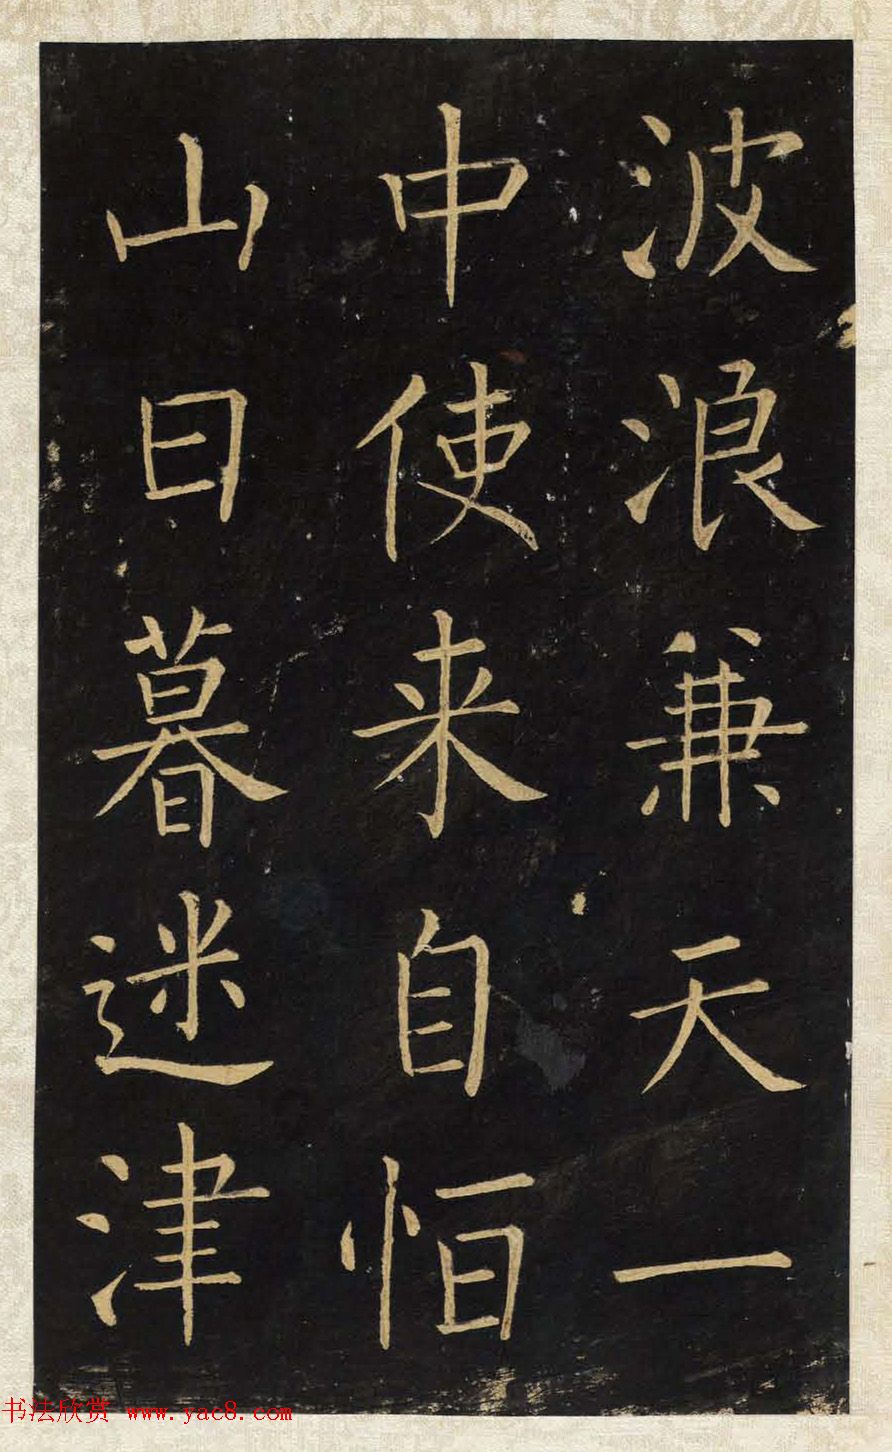 波浪兼天一
中使来自恒
山日暮迷津
书法欣赏 www.yac8.com